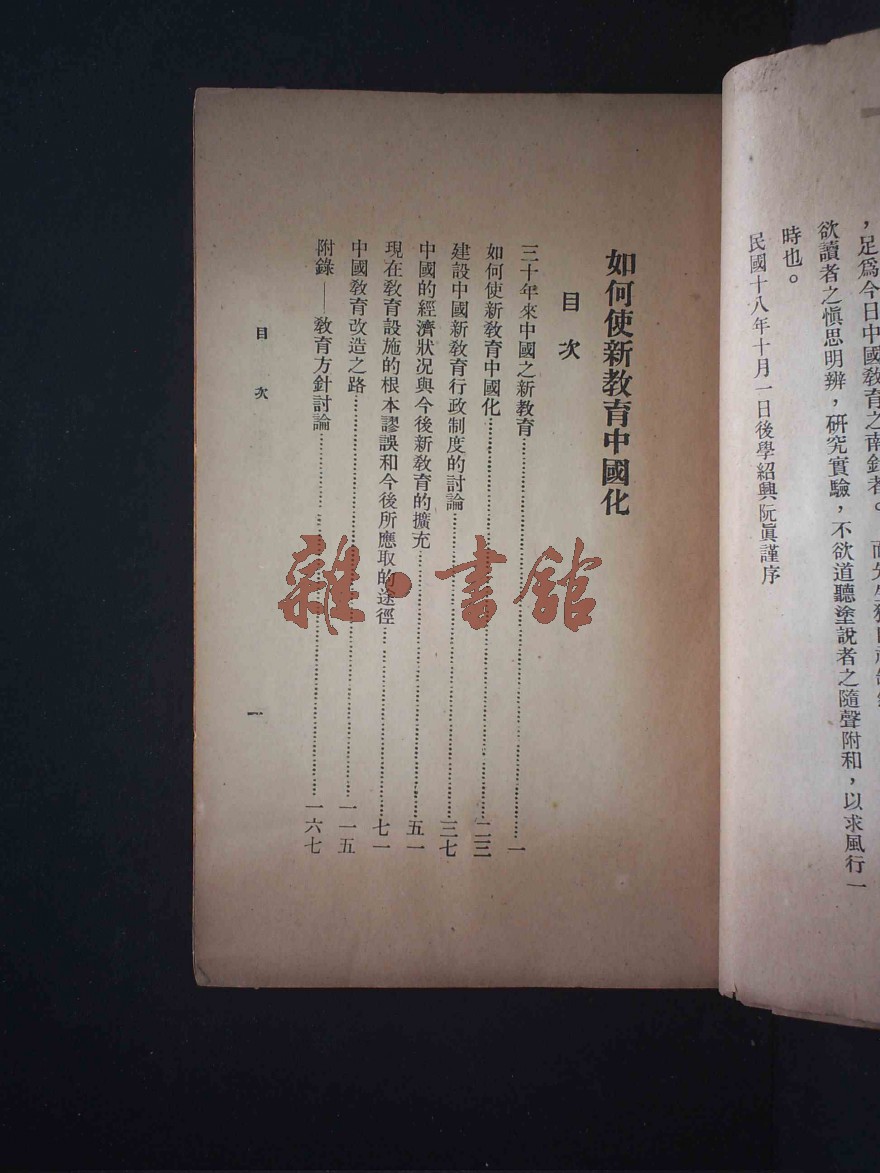 ，足爲今日中國敎育之南鍼者。而先生
欲讀者之愼思明辨，硏究實驗，不欲道聽塗說者之隨聲附和，以求風行一
時也。
民國十八年十月一日後學紹興阮眞謹序
如何使新敎育中國化
目次
三十年來中國之新敎育……一
如何使新敎育中國化……二三
建設中國新敎育行政制度的討論……三七
中國的經濟狀况與今後新敎育的擴充……五一
現在敎育設施的根本謬誤和今後所應取的途徑……七一
中國敎育改造之路……一一五
附錄——敎育方針討論……一六七
目次
一
雜·書館